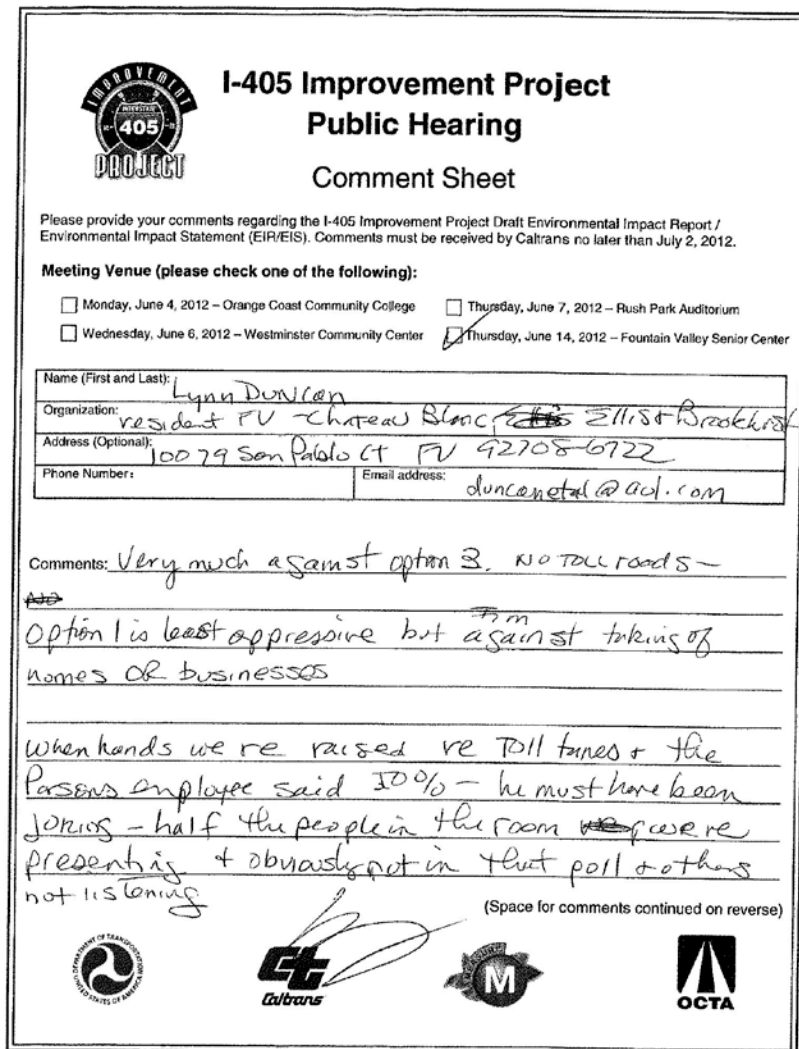 IMPROVEMENT
INTERSTATE
405
PROJECT
I-405 Improvement Project
Public Hearing
Comment Sheet
Please provide your comments regarding the I-405 Improvement Project Draft Environmental Impact Report /
Environmental Impact Statement (EIR/EIS). Comments must be received by Caltrans no later than July 2, 2012.
Meeting Venue (please check one of the following):
Monday, June 4, 2012 – Orange Coast Community College
Thursday, June 7, 2012 – Rush Park Auditorium
Wednesday, June 6, 2012 – Westminster Community Center
Thursday, June 14, 2012 – Fountain Valley Senior Center
Name (First and Last): Lynn Duncan
Organization: resident FV - Chateau Blanc, Ellis & Brookhurst
Address (Optional): 10079 San Pablo Ct FV 92708-6722
Phone Number:
Email address: duncanetal@aol.com
Comments: Very much against option 3. NO TOLL roads –
Option 1 is least oppressive but I'm against taking of
homes OR businesses
When hands were raised re Toll lanes & the
Parsons employee said 50% – he must have been
joking – half the people in the room were
presenting & obviously not in that poll & others
not listening
(Space for comments continued on reverse)
DEPARTMENT OF TRANSPORTATION
UNITED STATES OF AMERICA
Caltrans
MEASURE
M
OCTA